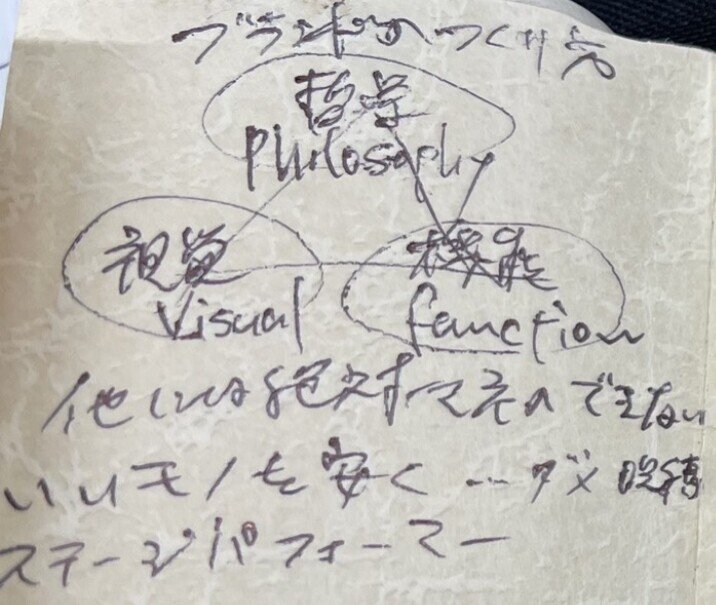 ブランドのつくり方
哲学
philosophy
視覚
Visual
機能
function
他には絶対マネのできない
いいモノを安く…ダメ
ステージパフォーマー